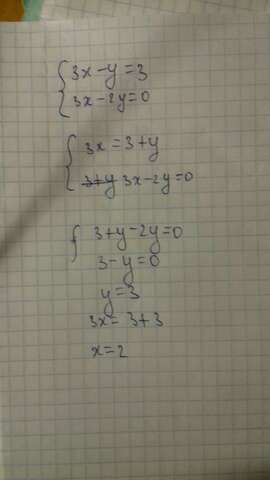 3x-y=3
3x-2y=0
3x=3+y
3+y 3x-2y=0
3+y-2y=0
3-y=0
y=3
3x=3+3
x=2